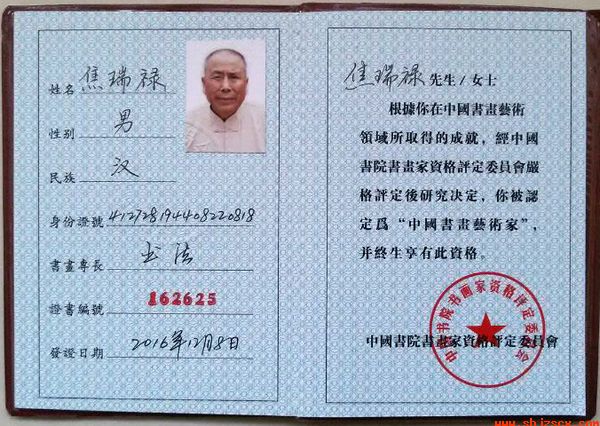 姓名 焦瑞禄
性别 男
民族 汉
身份證號 412728194408220818
書畫專長 书法
證書編號 162625
發證日期 2016年12月8日
焦瑞禄 先生/女士
根據你在中國書畫藝術
領域所取得的成就，經中國
書院書畫家資格評定委員會嚴
格評定後研究决定，你被認
定爲“中國書畫藝術家”，
并終生享有此資格。
中国书院书画家资格评定委员会
中國書院書畫家資格評定委員會